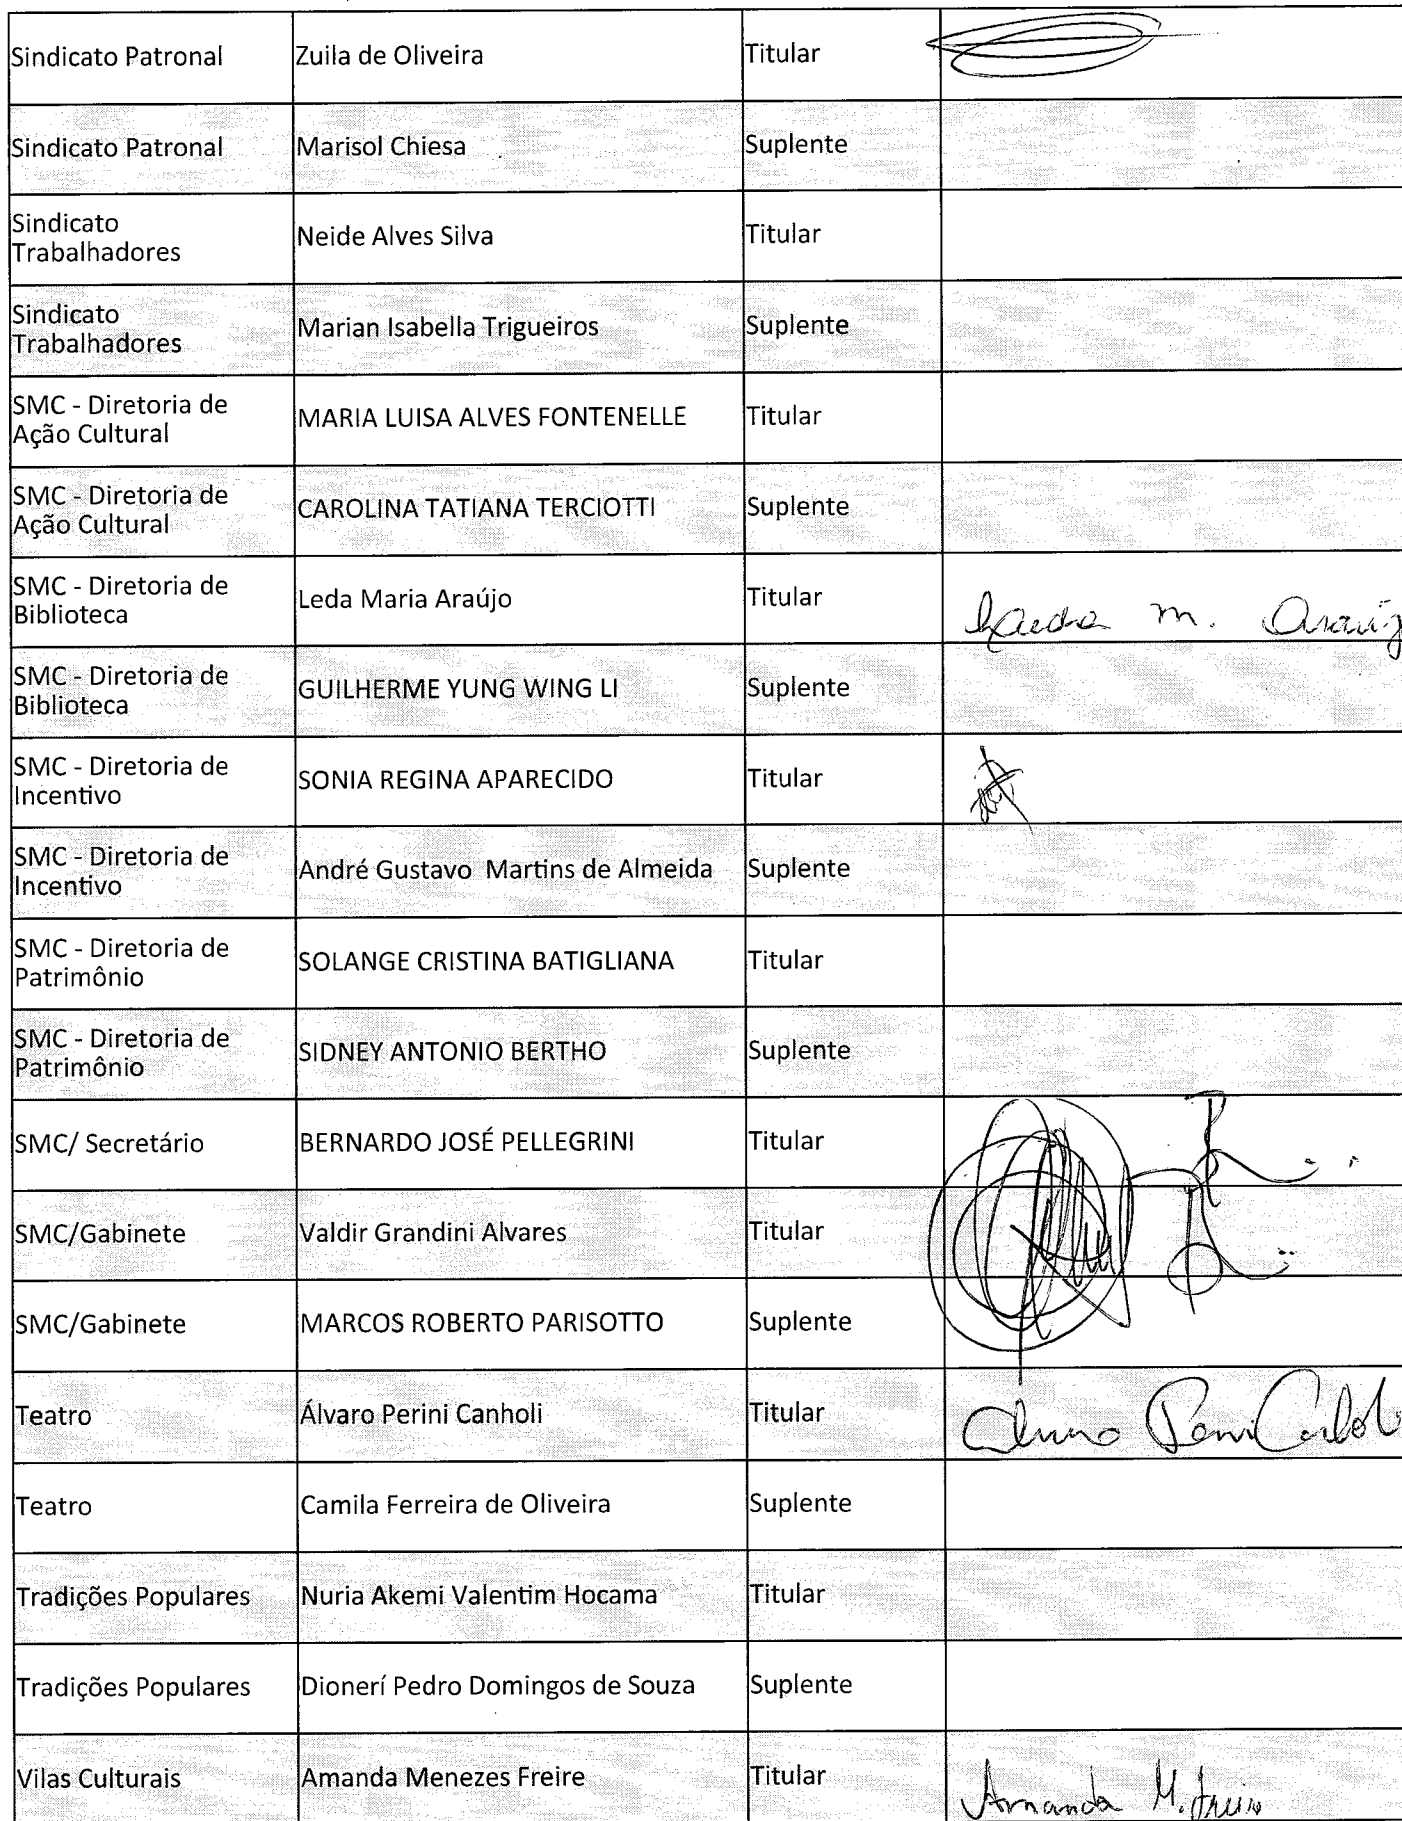 Sindicato Patronal Zuila de Oliveira Titular
Sindicato Patronal Marisol Chiesa Suplente
Sindicato
Trabalhadores Neide Alves Silva Titular
Sindicato
Trabalhadores Marian Isabella Trigueiros Suplente
SMC - Diretoria de
Ação Cultural MARIA LUISA ALVES FONTENELLE Titular
SMC - Diretoria de
Ação Cultural CAROLINA TATIANA TERCIOTTI Suplente
SMC - Diretoria de
Biblioteca Leda Maria Araújo Titular m.
SMC - Diretoria de
Biblioteca GUILHERME YUNG WING LI Suplente
SMC - Diretoria de
Incentivo SONIA REGINA APARECIDO Titular
SMC - Diretoria de
Incentivo André Gustavo Martins de Almeida Suplente
SMC - Diretoria de
Patrimônio SOLANGE CRISTINA BATIGLIANA Titular
SMC - Diretoria de
Patrimônio SIDNEY ANTONIO BERTHO Suplente
SMC/ Secretário BERNARDO JOSÉ PELLEGRINI Titular
SMC/Gabinete Valdir Grandini Alvares Titular
SMC/Gabinete MARCOS ROBERTO PARISOTTO Suplente
Teatro Álvaro Perini Canholi Titular
Teatro Camila Ferreira de Oliveira Suplente
Tradições Populares Nuria Akemi Valentim Hocama Titular
Tradições Populares Dionerí Pedro Domingos de Souza Suplente
Vilas Culturais Amanda Menezes Freire Titular Amanda M. Freire